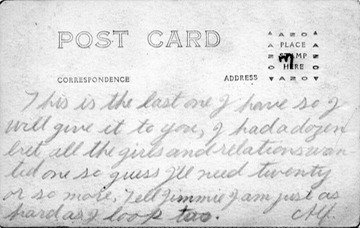 POST CARD
AZO
PLACE
STAMP
HERE
AZO
CORRESPONDENCE
ADDRESS
This is the last one I have so I
will give it to you, I had a dozen
but all the girls and relations wan
ted one so guess I'll need twenty
or so more, Tell Jimmie I am just as
hard as I look too.